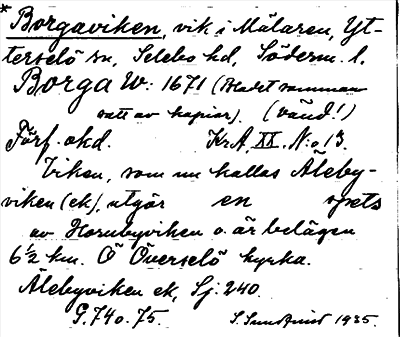 * Borgaviken, vik i Mälaren, Yt-
terselö sn, Selebo hd, Söderm. l.
Borga W: 1671 (Bladet samman
satt av kopior). (vänd!)
Förf. okd. Kr.A. XX. N:o 13.
Viken, som nu kallas Äleby-
viken (ek), utgör en spets
av Hornbyviken o. är belägen
6½ km. Ö Överselö kyrka.
Älebyviken ek, Sj. 240.
G. 74 o. 75. S. Sundquist 1935.